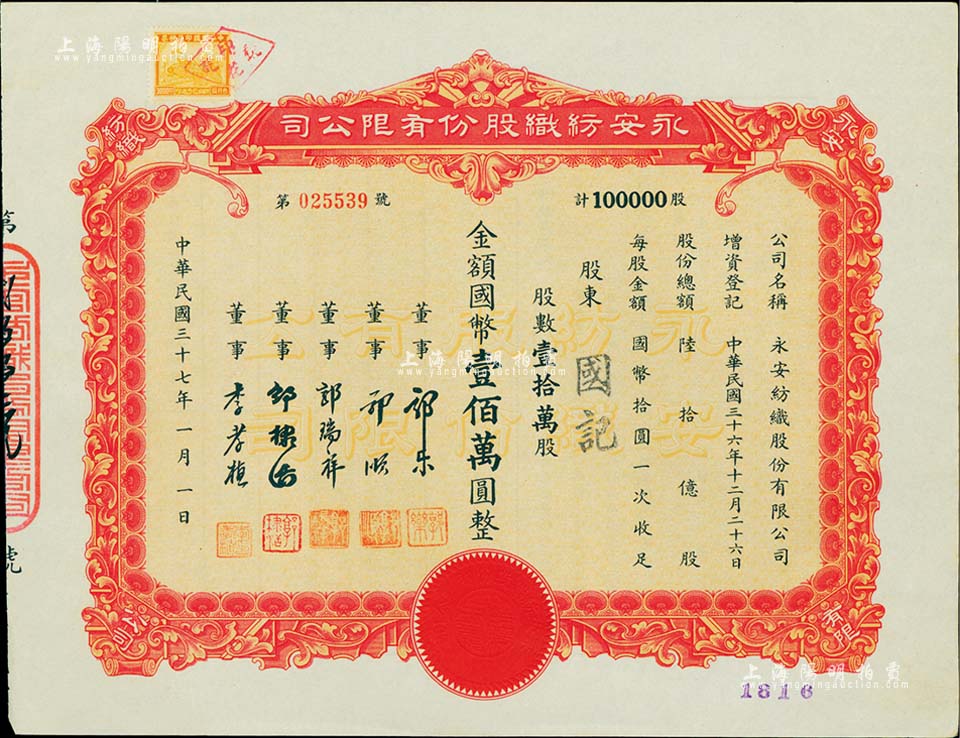 上海陽明拍賣
www.yangmingauction.com
永安紡織股份有限公司
永安
紡織
有限
公司
計100000股
第 025539 號
公司名稱 永安紡織股份有限公司
增資登記 中華民國三十六年十二月二十六日
股份總額 陸拾億股
每股金額 國幣拾圓一次收足
股東 國記
股數壹拾萬股
金額國幣壹佰萬圓整
董事 郭樂
董事 郭順
董事 郭瑞祥
董事 郭棣活
董事 李孝植
中華民國三十七年一月一日
第
號
永安紡織股份有限公司
上海陽明拍賣
www.yangmingauction.com
上海陽明拍賣
www.yangmingauction.com
1816